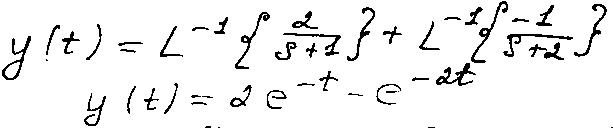 y(t) = L^{-1}{\frac{2}{s+1}} + L^{-1}{\frac{-1}{s+2}}
y(t) = 2e^{-t} - e^{-2t}